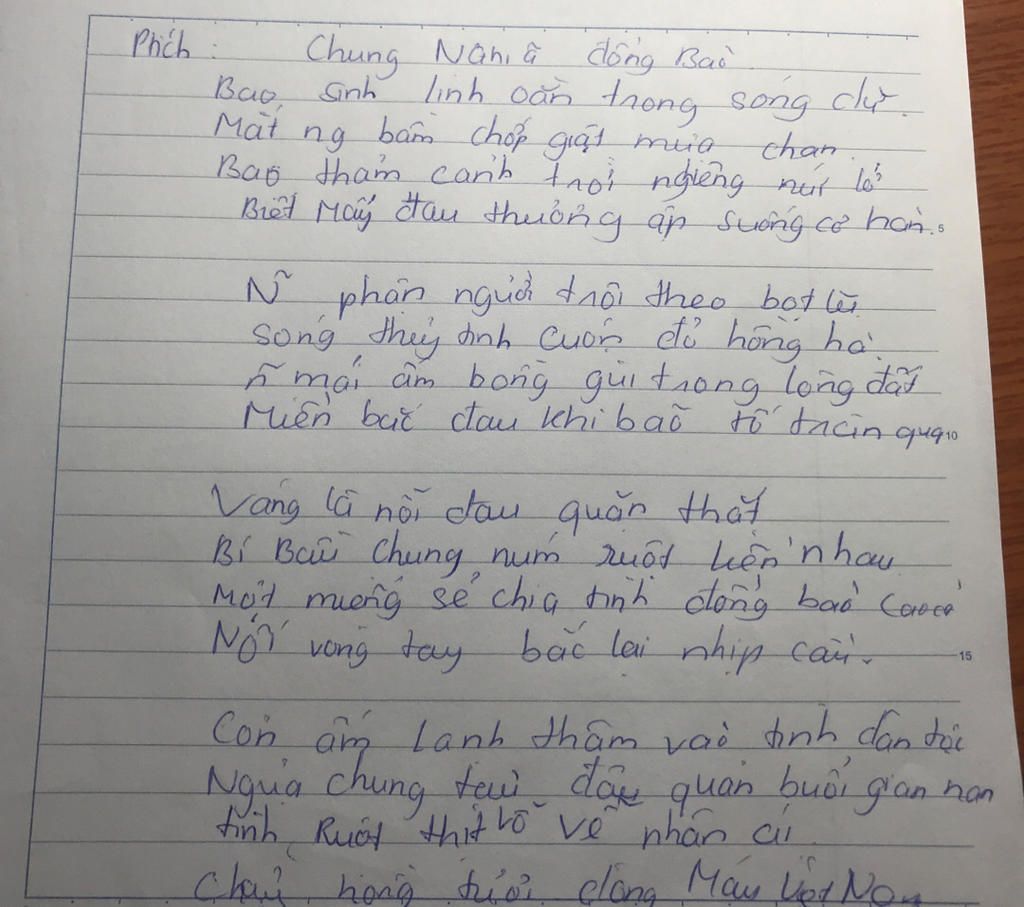 Phích : Chung Nghĩa đồng Bào
Bao sinh linh oằn trong sóng dữ
Mất ng bầm chớp giật mưa chan
Bao thảm cảnh trời nghiêng núi lở
Biết Mấy đau thương ập xuống cơ hàn. 5
phận người trôi theo bọt lũ
sóng thuỷ tinh cuốn đỏ hồng hà
mái ấm bỗng gùi trong lòng đất
Miền bắc đau khi bão tố tràn qua 10
Vẫng là nỗi đau quặn thắt
Bí Bầu Chung núm ruột liền nhau
Một miếng sẻ chia tình đồng bào cao cả
Nối vòng tay bắc lại nhịp cầu. 15
Còn ấm lạnh thấm vào tình dân tộc
Ngựa chung tàu đâu quản buổi gian nan
tình Ruột thịt vỗ về nhân ái
Chảy hồng tươi dòng Máu Việt Nam